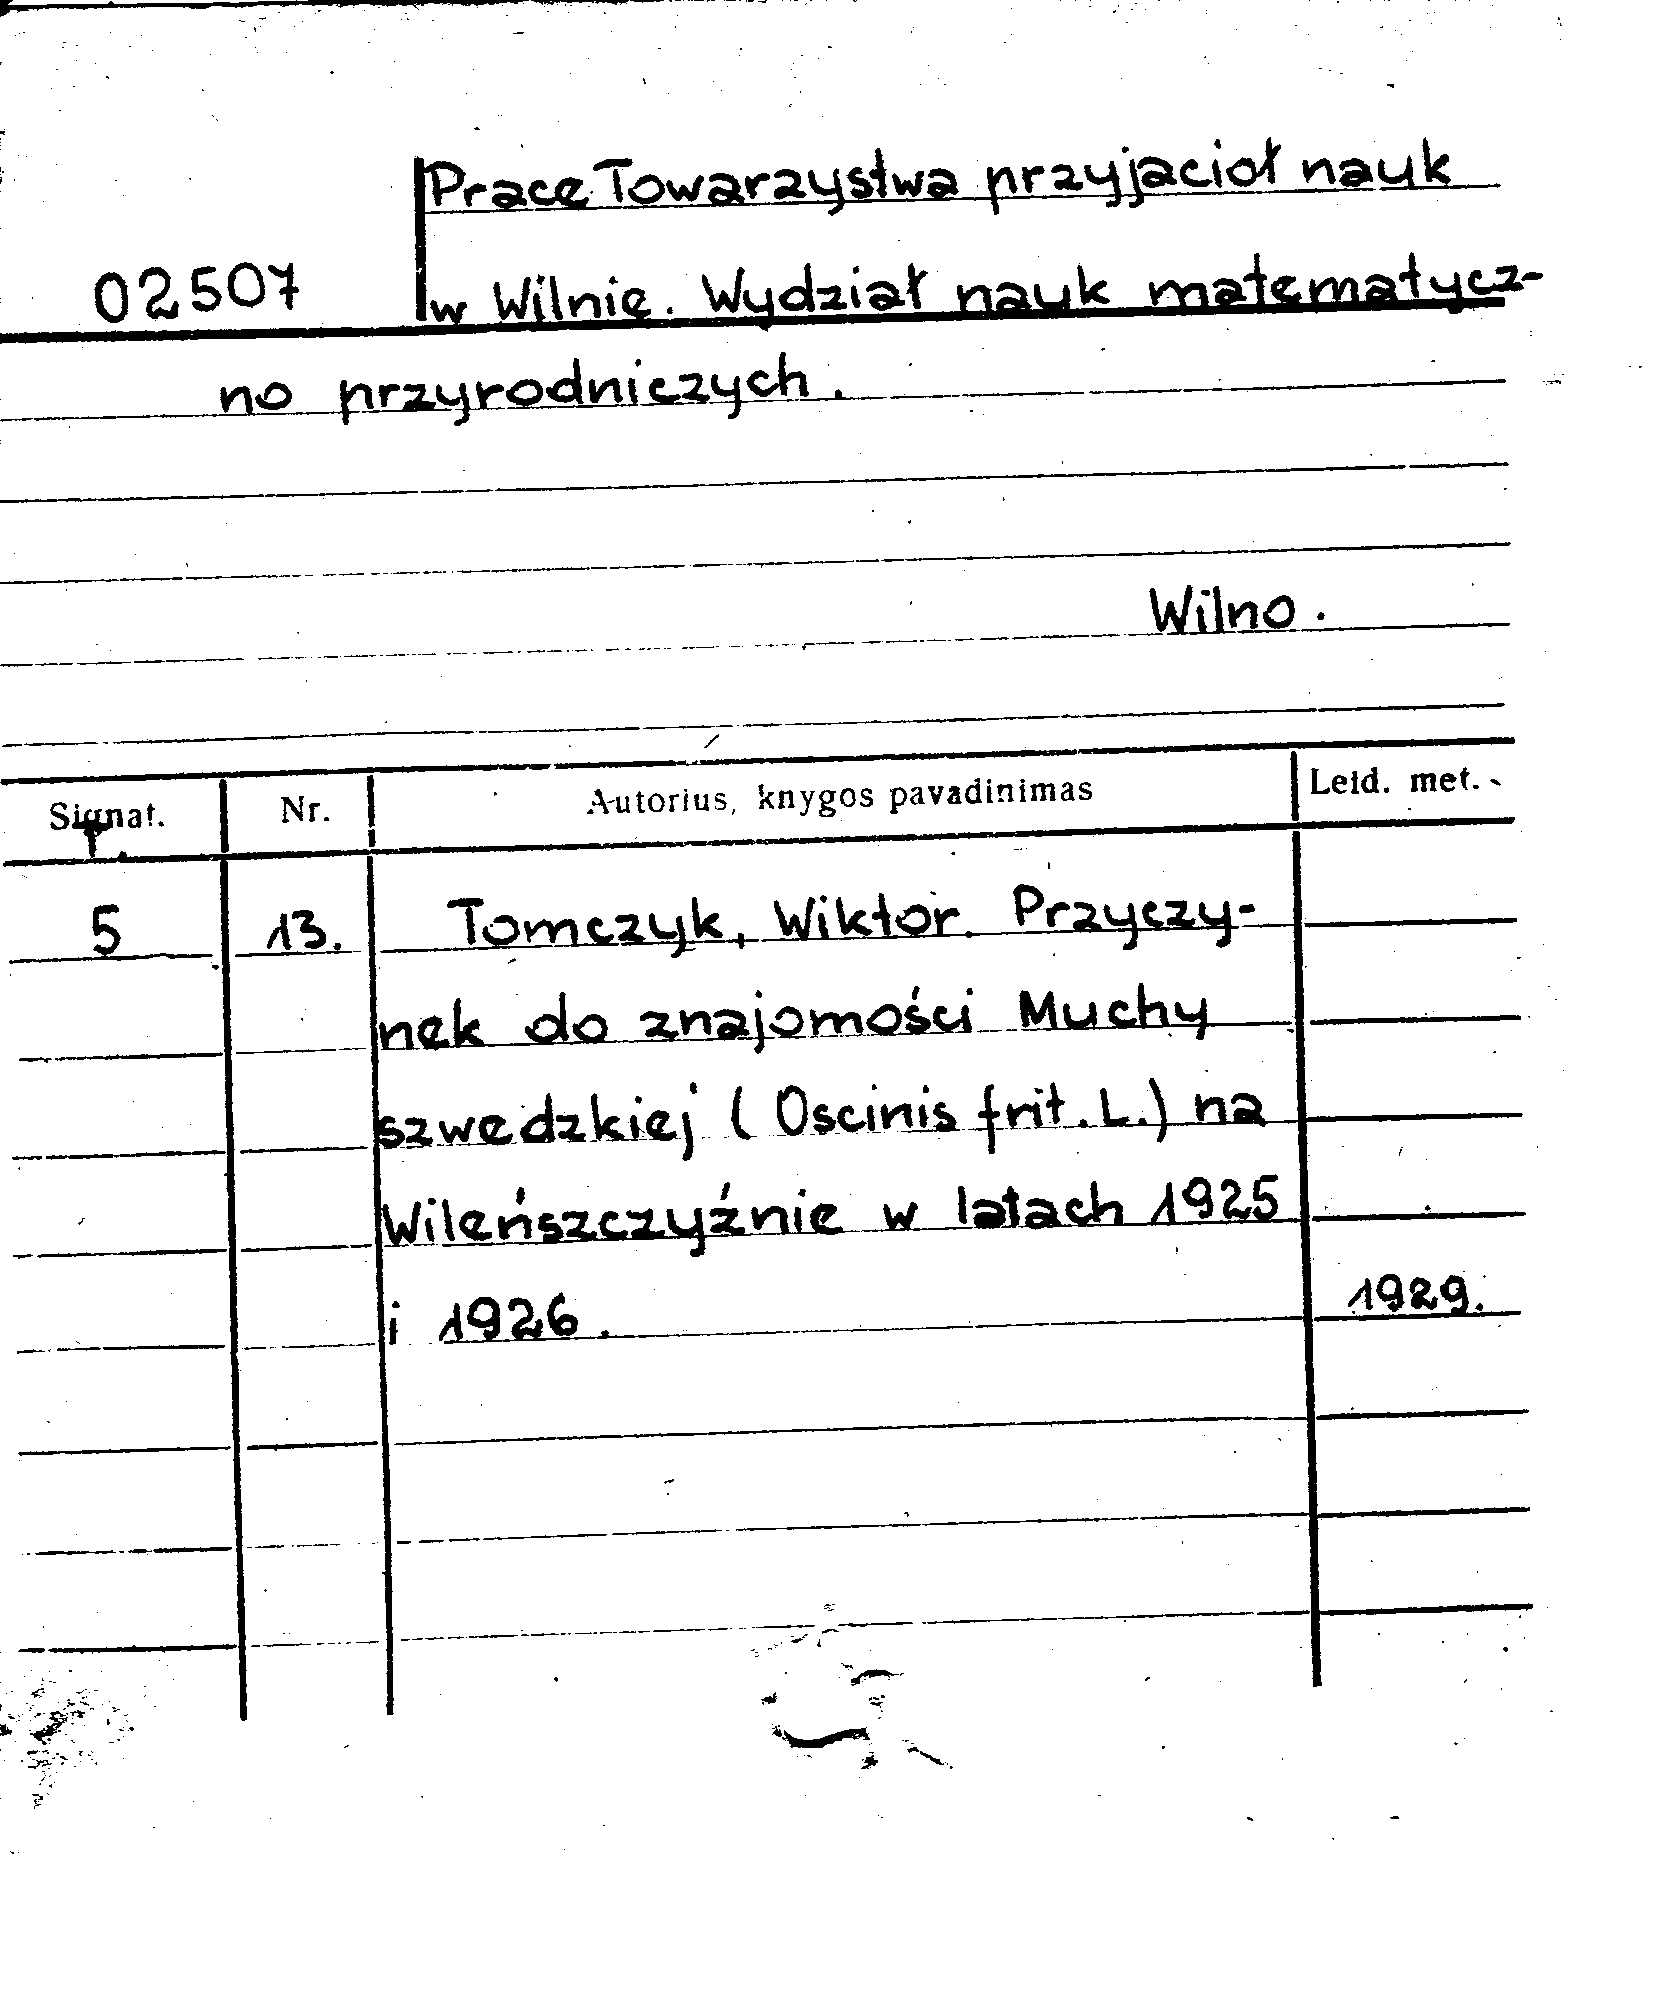 Prace Towarzystwa przyjacioł nauk
02507 w Wilnie. Wydział nauk matematycz-
no przyrodniczych.
Wilno.
Signat. Nr. Autorius, knygos pavadinimas Leid. met.
T.
5 13. Tomczyk, Wiktor. Przyczy-
nek do znajomości Muchy
szwedzkiej (Oscinis frit. L.) na
Wileńszczyźnie w latach 1925
i 1926. 1929.